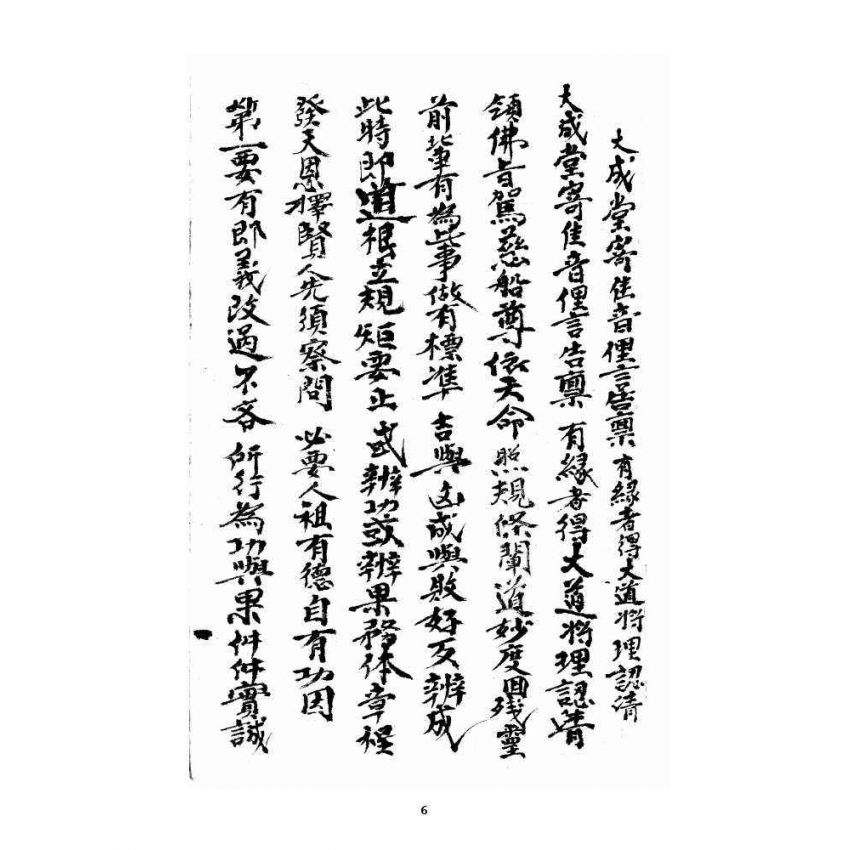 大成堂寄佳音俚言告禀 有緣者得大道將理認清
大成堂寄佳音俚言告禀 有緣者得大道將理認清
領佛旨駕慈船尊依天命 照規條闡道妙度回殘靈
前輩有為此事做有標準 吉與凶成與敗好歹辦成
此時即道根立規矩要止 或辦功或辦果務体章程
發天恩擇賢人先須察問 必要人祖有德自有功因
第一要有即義改過不吝 所行為功與果件件實誠
6